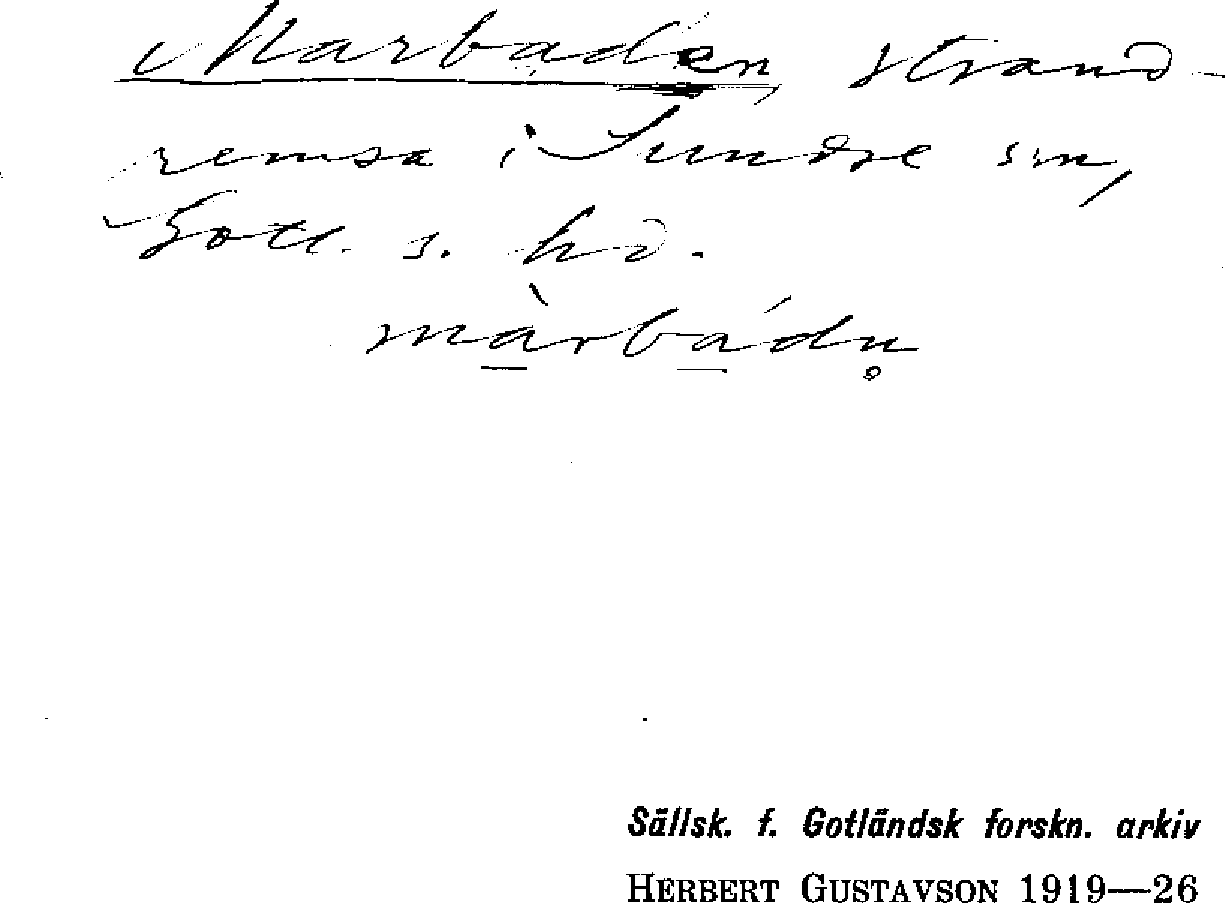 Marbaden, strand-
remsa i Sundre sn,
Gotl. s. hd.
mà̱rbá̱dn̥
Sällsk. f. Gotländsk forskn. arkiv
HERBERT GUSTAVSON 1919—26